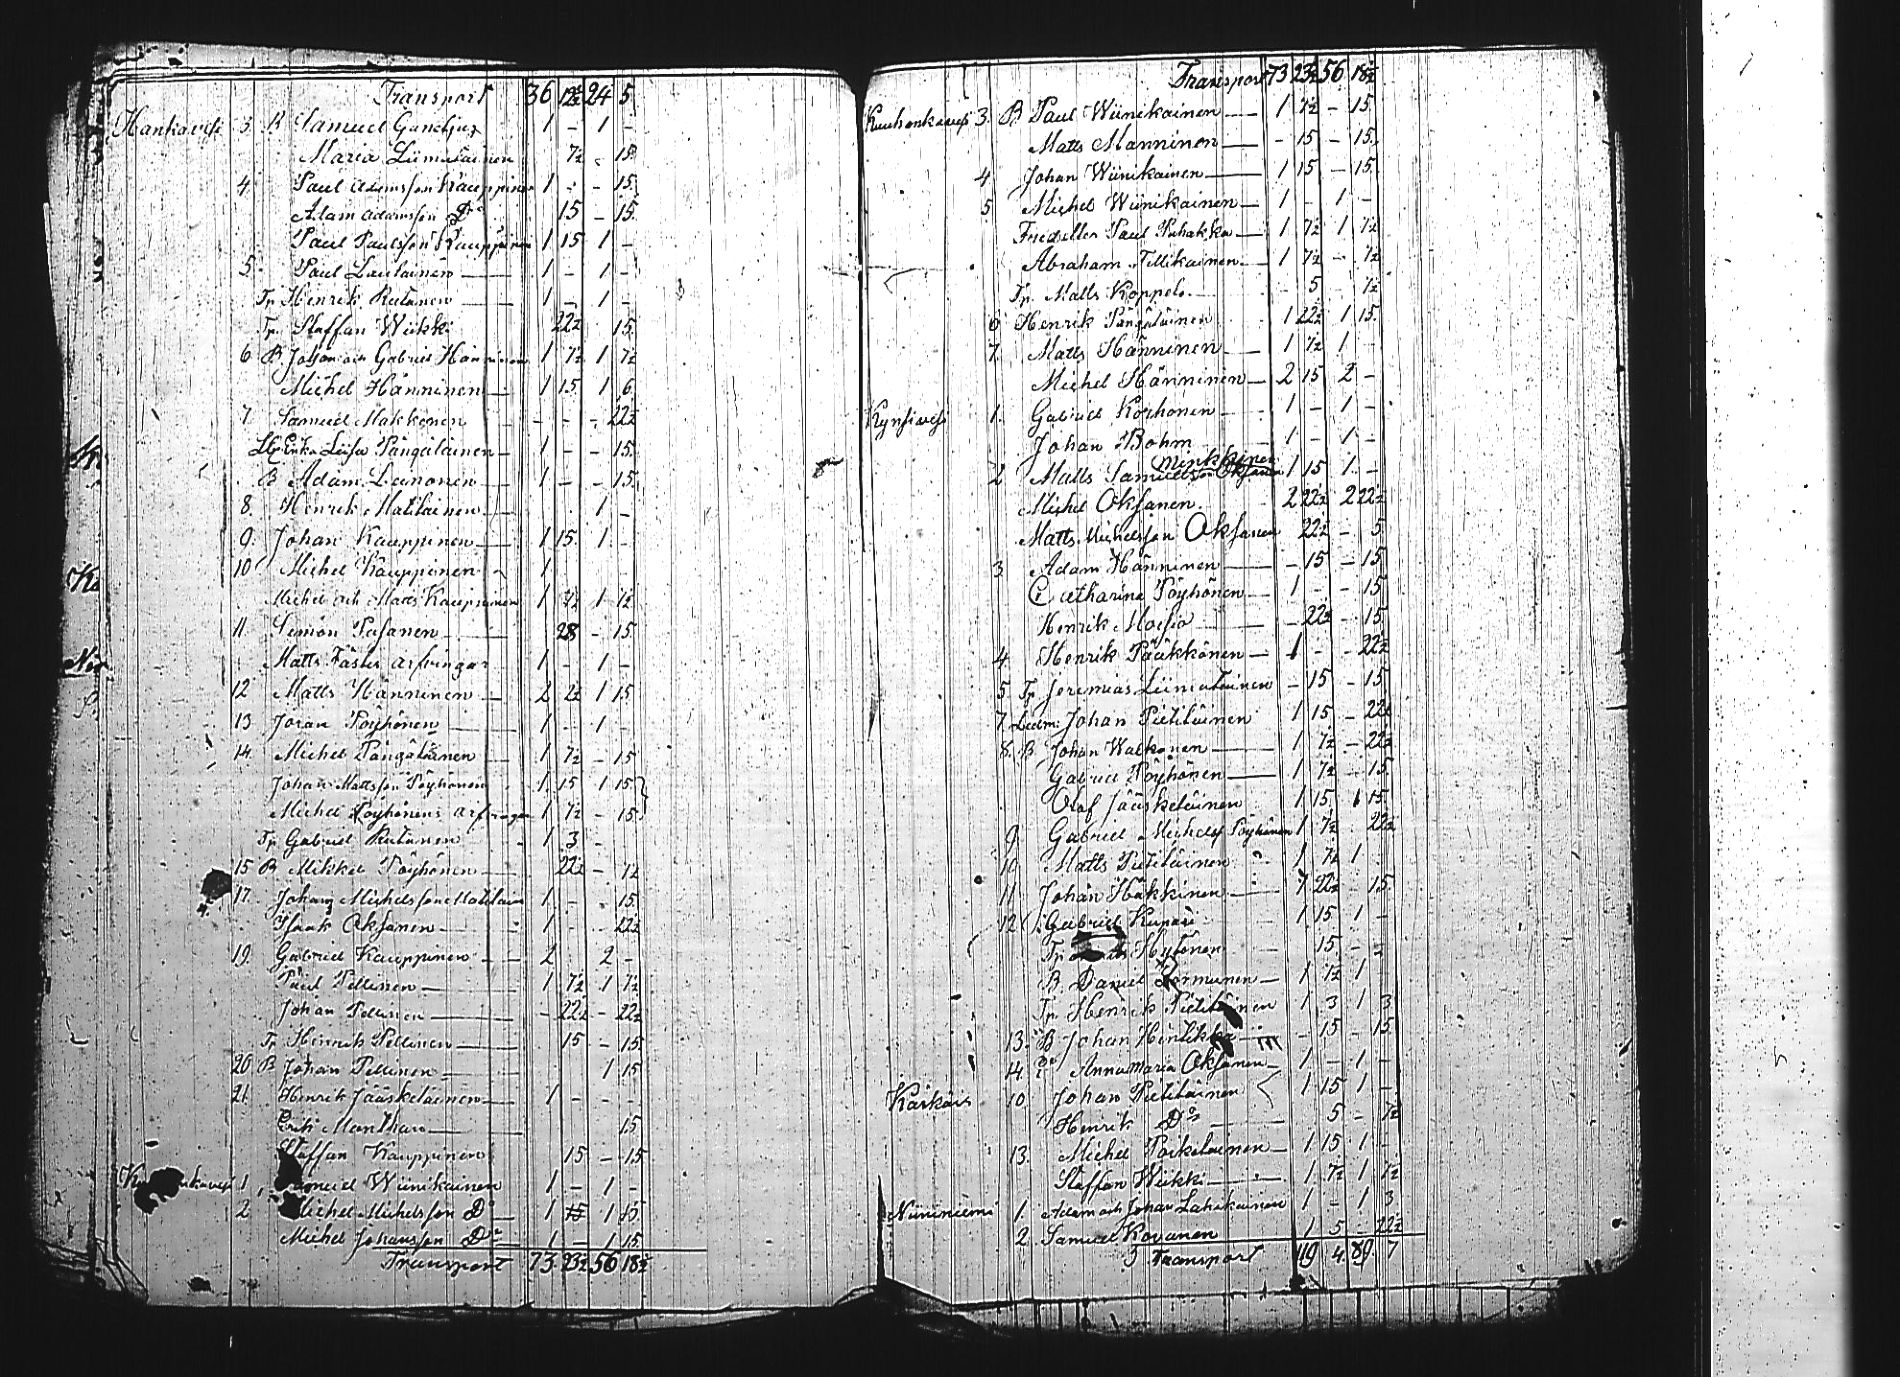 Transport 36 12½ 24 5
Hankavesi 3. B Samuel Ganeljus 1 - 1 -
Maria Liimatainen 7½ - 15
4 Paul Adamsson Kauppinen 1 - - 15
Adam Adamsson Do 15 - 15
Paul Paulsson Kauppinen 1 15 1 -
5. Paul Laulainen 1 - 1 -
Tp Henrik Rutanen 1 - 1 -
Tp. Staffan Wiikki 22½ 15
6 B Johan och Gabriel Hänninen 1 7½ 1 7½
Michel Hänninen 1 15 1 6
7. Samuel Makkonen - - - 22½
Lisa Pängäläinen 1 - - 15
B Adam Leinonen 1 - - 15
8. Henrik Matilainen 1 -
9. Johan Kauppinen 1 15 1 -
10 Michel Kauppinen 1
Michel och Matts Kauppinen 1 7½ 1 7½
11. Simon Pasanen 28 - 15
Matts Fästes arfvingar 1 - 1 -
12 Matts Hänninen 2 2½ 1 15
13 Johan Pöyhönen 1 - 1 -
14. Michel Pängäläinen 1 7½ - 15
Johan Mattsson Pöyhönen 1 15 1 15
Michel Pöyhönens arfvingar 1 7½ - 15
Tp Gabriel Rutanen 1 3 -
15 B Mikkel Pöyhönen 22½ - 7½
17. Johan Michelsson Matilainen 1 - - 15
Isaak Oksanen 1 - - 22½
19. Gabriel Kauppinen 2 2 -
Paul Pellinen 1 7½ 1 7½
Johan Pellinen - 22½ - 22½
Tp Henrik Pellinen 15 - 15
20 B Johan Pellinen 1 15
21. Henrik Jääskeläinen 1 - - -
Erik Manthan 15
Staffan Kauppinen 15 - 15
1. Samuel Wiinikainen 1 - 1 -
2 Michel Michelsson Do 1 15 1 15
Michel Johansson Do 1 - 1 15
Transport 73 23½ 56 18½
Transport 73 23½ 56 18½
Kuuhankavesi 3. B Paul Wiinikainen 1 7½ - 15
Matts Manninen - 15 - 15
4 Johan Wiinikainen 1 15 - 15
5 Michel Wiinikainen 1 - 1 -
Paul Puhakka 1 7½ 1 7½
Abraham Tillikainen 1 7½ - 7½
Tp. Matts Koppelo 5 - 7½
6 Henrik Pängäläinen 1 22½ 1 15
7. Matts Hänninen 1 7½ 1 -
Michel Hänninen 2 15 2 -
Kynsivesi 1. Gabriel Korhonen 1 - 1 -
Johan Bohm 1 - 1 -
Minkkinen
2 Matts Samuelsson Oksanen 1 15 1 -
Michel Oksanen 2 22½ 2 22½
Matts Michelsson Oksanen 22½ - 5
3 Adam Hänninen - 15 - 15
Catharina Pöyhönen 1 - 15
Henrik Moisio 22½ - 15
4. Henrik Pääkkönen 1 - - 22½
5 Tp Jeremias Liimatainen - 15 - 15
7. Johan Pietiläinen 1 15 - 22½
8. B Johan Walkonen 1 7½ - 22½
Gabriel Pöyhönen 1 7½ - 15
Olof Jääskeläinen 1 15 1 15
9. Gabriel Michels Pöyhönen 1 7½ 22½
10 Matts Pietiläinen 1 7½ 1
11 Johan Häkkinen 1 22½ 15
12 Gabriel Kupari 1 15 1 -
Tp Hytönen 15 - -
B Daniel Tormunen 1 7½ 1
Tp Henrik Pietiläinen 1 3 1 3
13. B Johan Hintikka - 15 - 15
14. Anna Maria Oksanen 1 - 1 -
Kärkäis 10 Johan Pietiläinen 1 15 1 -
Henrik Do 5 - 7½
13. Michel Poikolainen 1 15 1 -
Staffan Wiikki 1 7½ 1 7½
Niininiemi 1. Adam och Johan Lahikainen 1 - 1 3
2 Samuel Kovanen 1 5 - 22½
Transport 119 4 89 7